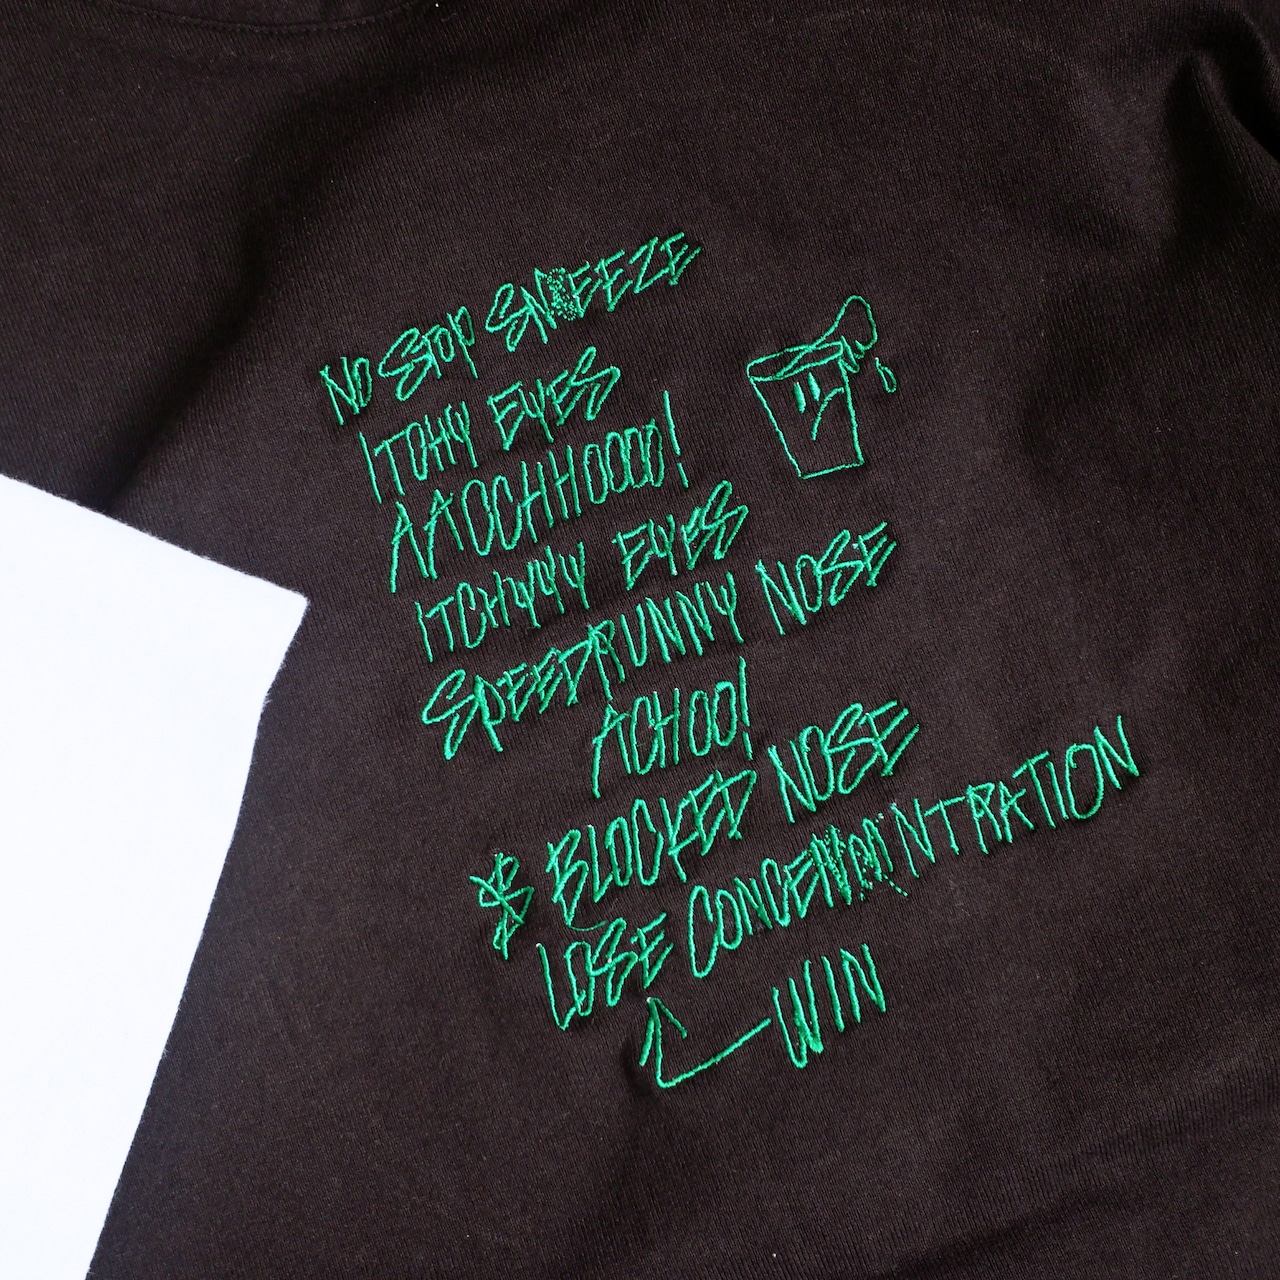 NO STOP SNEEZE
ITCHY EYES
AAOCHHOOOO!
ITCHYYY EYES
SPEEDRUNNY NOSE
ACHOO!
BLOCKED NOSE
LOSE CONCENTRATION
WIN